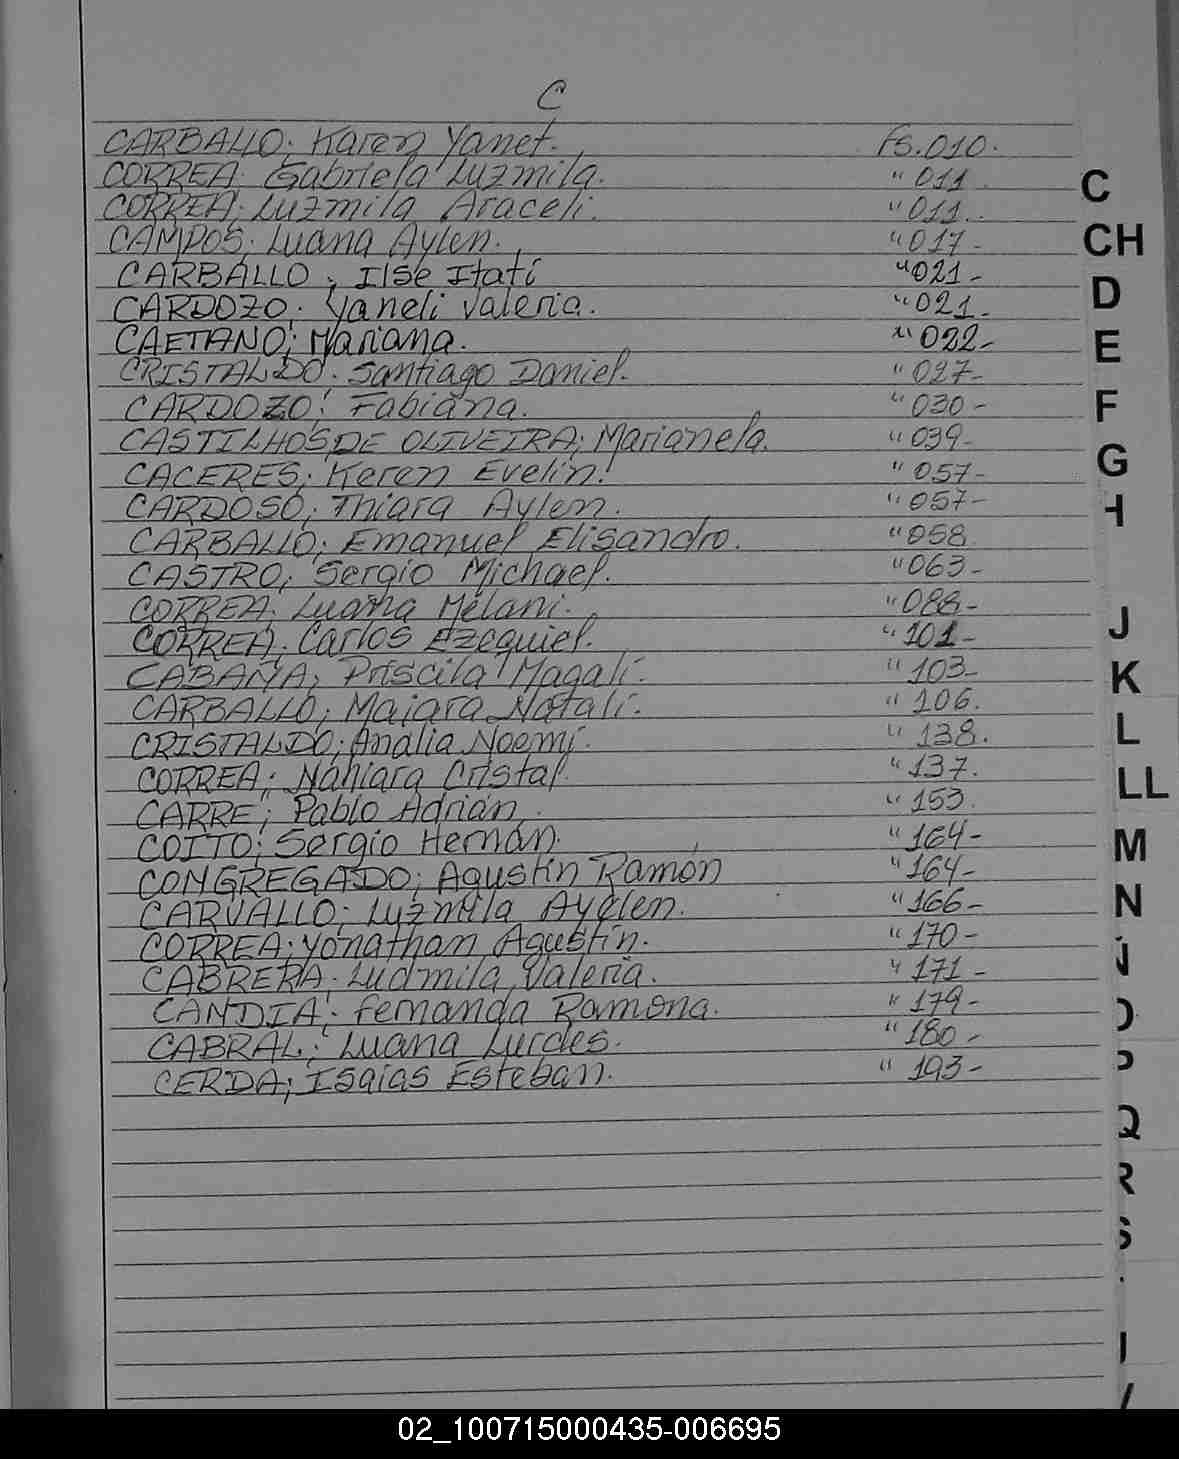 C
CARBALLO; Karen Yanet. Fs. 010.
CORREA; Gabriela Luzmila. " 011
CORREA; Luzmila Araceli. " 011.
CAMPOS; Luana Aylen. " 017-
CARBALLO; Ilse Itatí " 021-
CARDOZO; Yaneli Valeria. " 021.
CAETANO; Mariana. " 022-
CRISTALDO; Santiago Daniel. " 027-
CARDOZO; Fabiana. " 030-
CASTILHOS DE OLIVEIRA; Marianela. " 039-
CACERES; Keren Evelin. " 057-
CARDOSO; Thiara Aylen. " 057-
CARBALLO; Emanuel Elisandro. " 058
CASTRO; Sergio Michael. " 063-
CORREA; Luana Melani. " 088-
CORREA; Carlos Ezequiel. " 101-
CABAÑA; Priscila Magalí. " 103-
CARBALLO; Maiara Natalí. " 106.
CRISTALDO; Analia Noemí. " 138.
CORREA; Nahiara Cristal. " 137.
CARRE; Pablo Adrián. " 153.
COITO; Sergio Hernán. " 164-
CONGREGADO; Agustín Ramón " 164-
CARVALLO; Luzmila Ayelen. " 166-
CORREA; Yonatham Agustín. " 170-
CABRERA; Ludmila Valeria. " 171-
CANDIA; Fernanda Ramona. " 179-
CABRAL; Luana Lurdes. " 180-
CERDA; Isaias Esteban. " 193-
C
CH
D
E
F
G
H
J
K
L
LL
M
N
O
P
Q
R
S
02_100715000435-006695